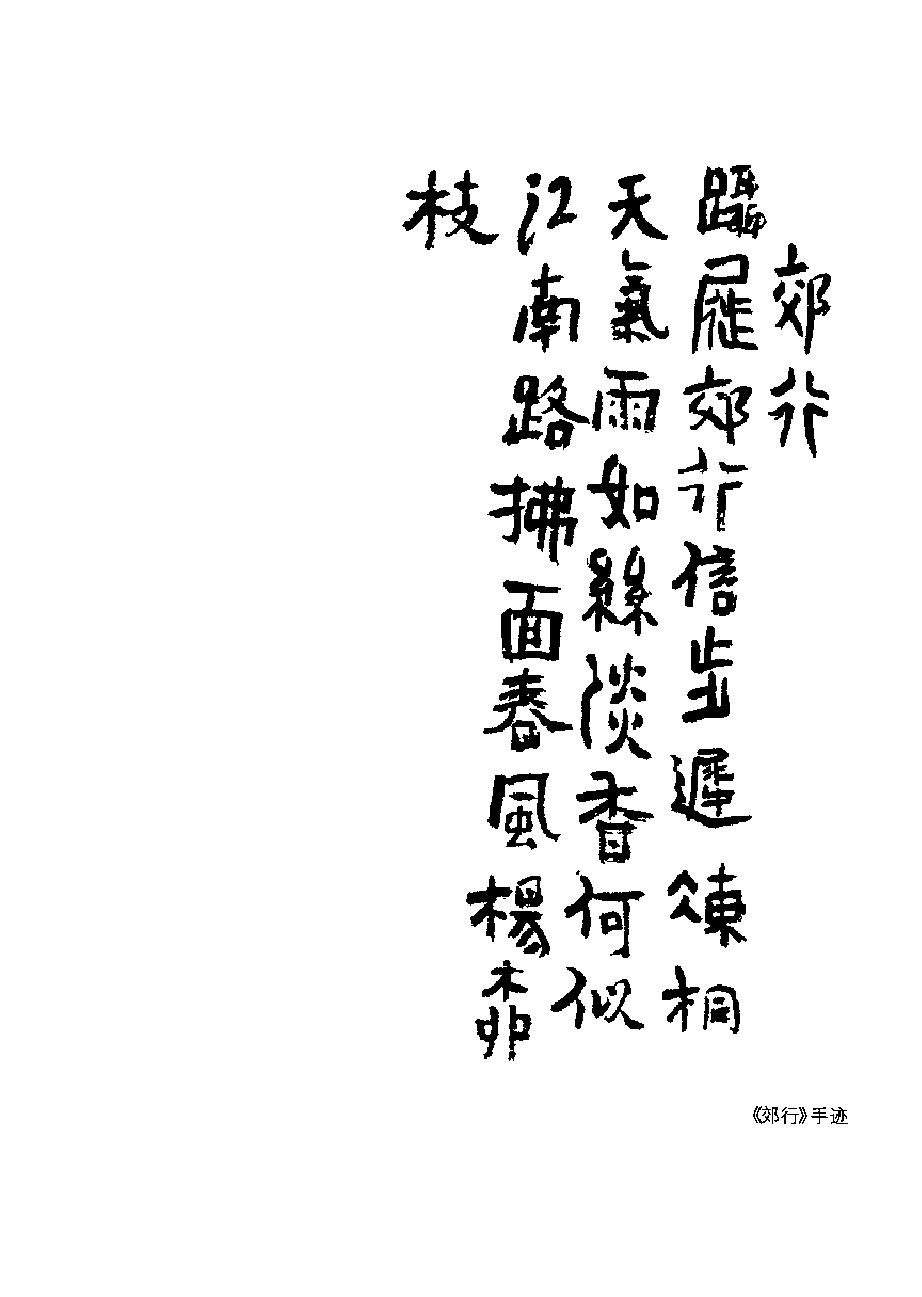 郊行
躡屣郊行信步遲凍桐
天氣雨如絲淡香何似
江南路拂面春風楊柳
枝
《郊行》手迹